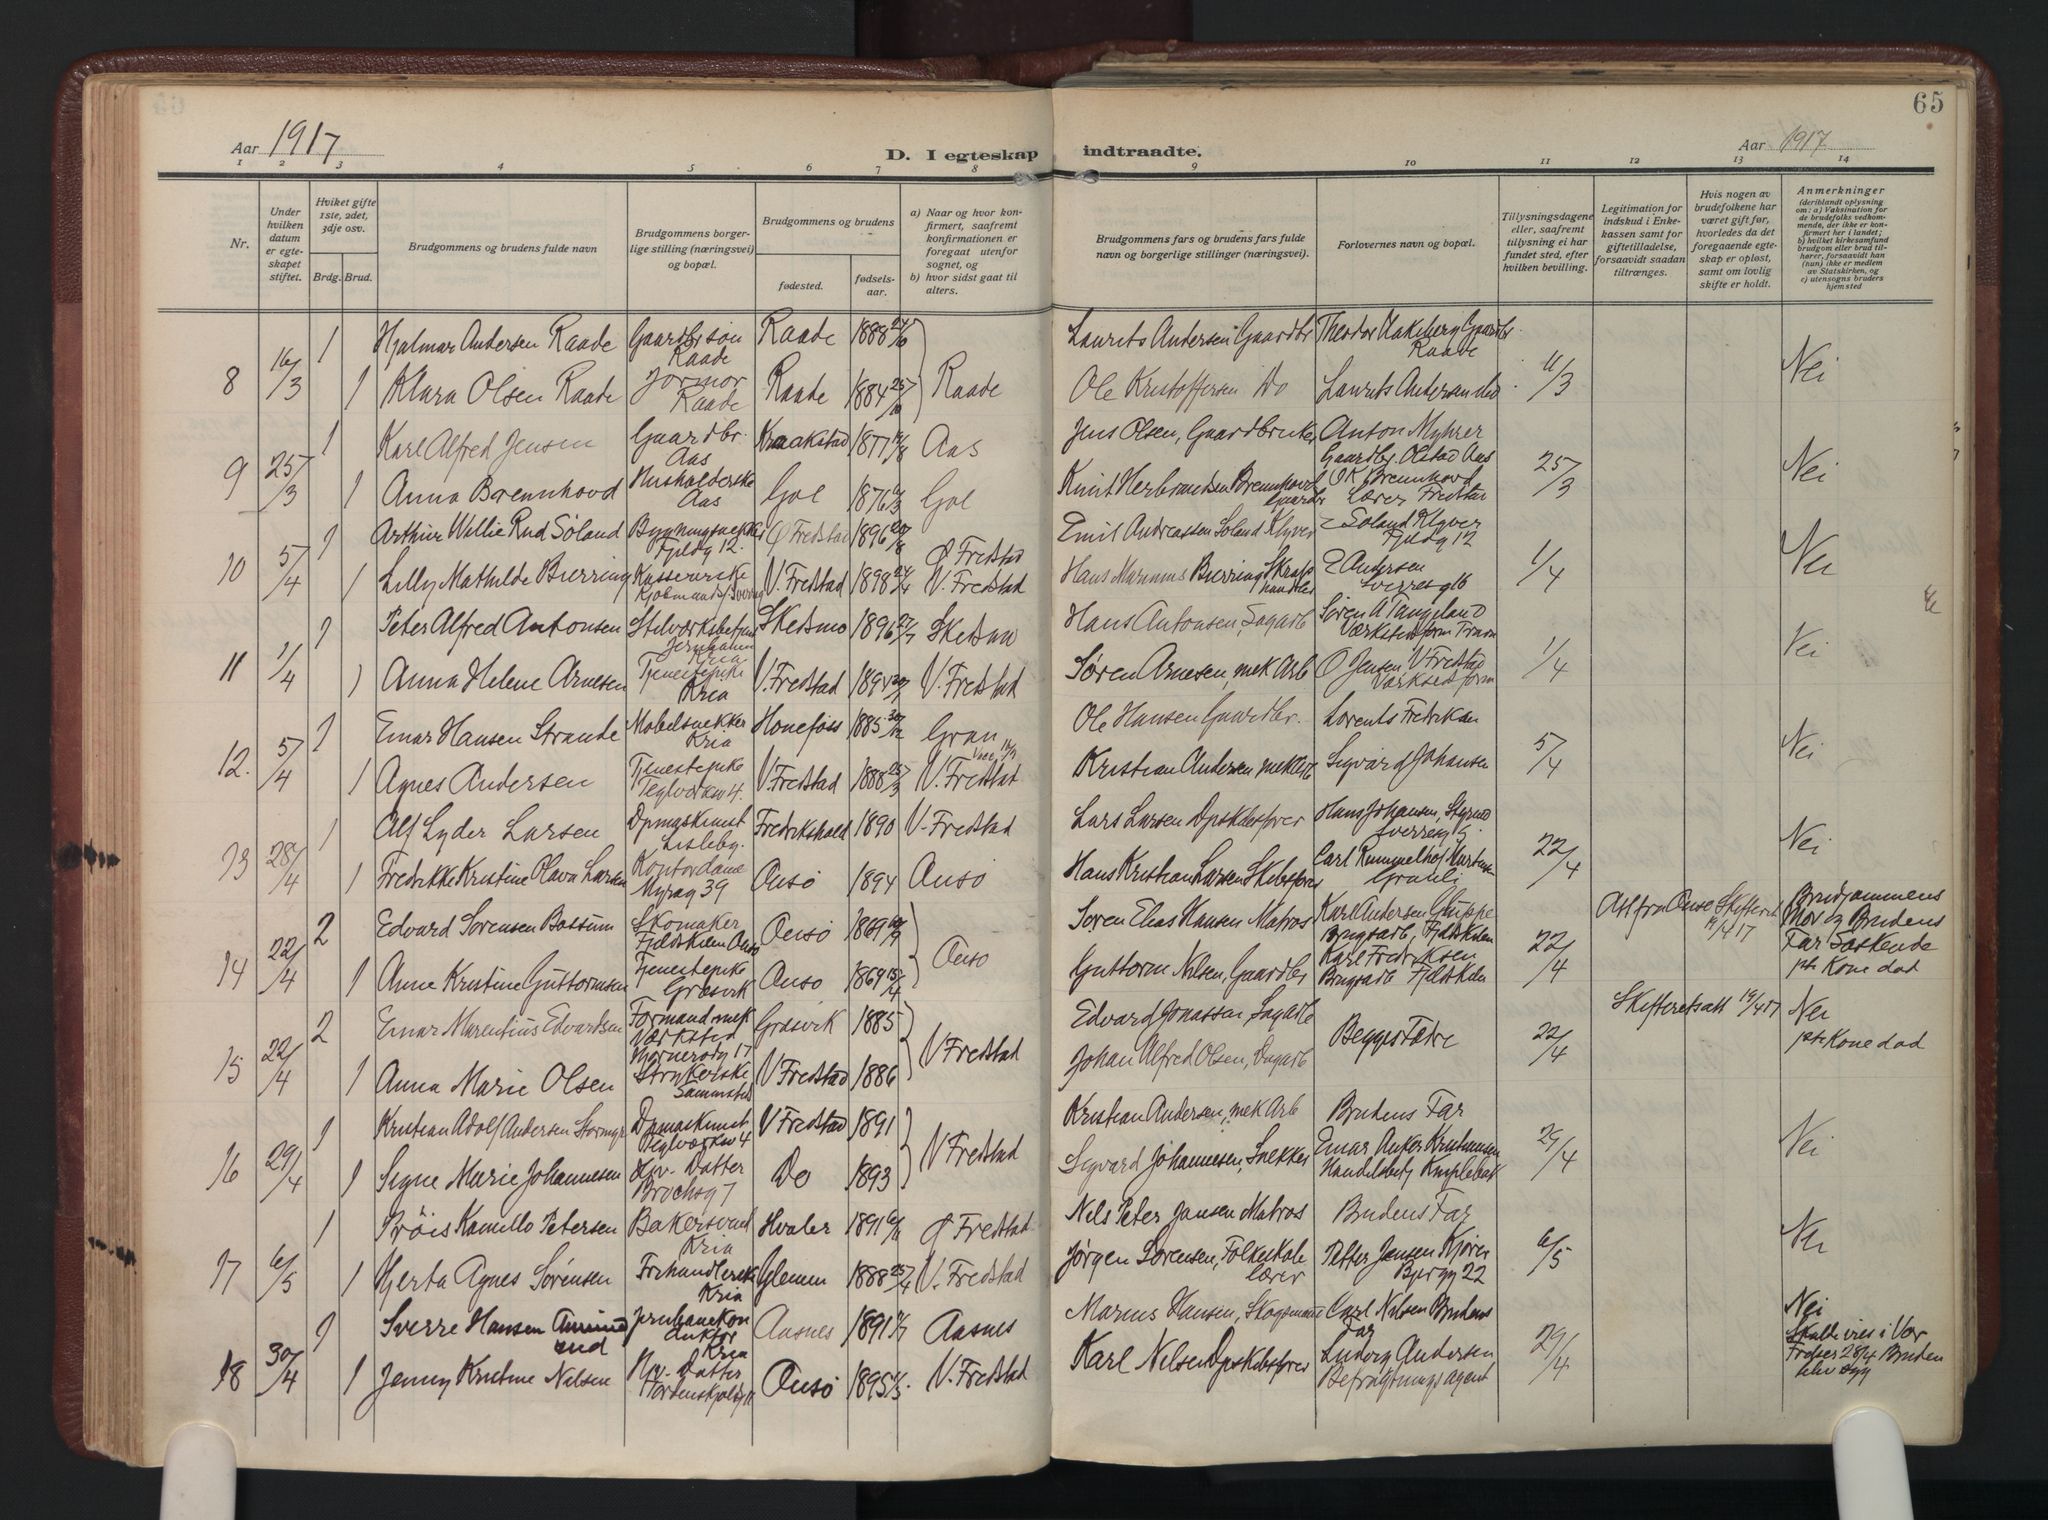 65
Aar 1917
D. I egteskap indtraadte.
Aar 1917
1 2 3 4 5 6 7 8 9 10 11 12 13 14
Nr.
Under hvilken datum er egteskapet stiftet.
Hviket gifte 1ste, 2det, 3dje osv.
Brdg. Brud.
Brudgommens og brudens fulde navn
Brudgommens borgerlige stilling (næringsvei) og bopæl.
Brudgommens og brudens
fødested.
fødselsaar.
a) Naar og hvor konfirmert, saafremt konfirmationen er foregaat utenfor sognet, og
b) hvor sidst gaat til alters.
Brudgommens fars og brudens fars fulde navn og borgerlige stillinger (næringsvei).
Forlovernes navn og bopæl.
Tillysningsdagene eller, saafremt tillysning ei har fundet sted, efter hvilken bevilling.
Legitimation for indskud i Enkekassen samt for giftetilladelse, forsaavidt saadan tiltrænges.
Hvis nogen av brudefolkene har været gift før, hvorledes da det foregaaende egteskap er opløst, samt om lovlig skifte er holdt.
Anmerkninger
(deriblandt oplysning om: a) Vaksination for de brudefolks vedkommende, der ikke er konfirmert her i landet; b) hvilket kirkesamfund brudgom eller brud tilhører, forsaavidt han (hun) ikke er medlem av Statskirken, og c) utensogns bruders hjemsted
8 16/3 1 Hjalmar Andersen Raade Gaardbr søn Raade Raade 1888 Laurits Andersen Gaardbr Gaardbr. Raade 11/3 Nei
1 Klara Olsen Raade Jormor Raade Raade 1884 25/10 Raade Ole Kristoffersen Do Laurits Andersen
9 25/3 1 Karl Alfred Jensen Gaardbr. Aas Kraakstad 1877 Aas Jens Olsen, Gaardbruker Anton Myhrer Gaardbr. Olstad Aas 25/3 Nei
1 Anna Brennhovd Husholderske Aas Gol 1876 Gol Knut Herbrandsen Brennhovd Gaardbr O K Brennhovd Lærer Fredstad
10 5/4 1 Arthur Willie Rud Söland Bygningsnekker Fjeldg 12. Ø Fredstad 1896 Ø Fredstad Emil Andreassen Soland Klyver E Soland Klyver Fjeldg 12 1/4 Nei
1 Lilly Mathilde Bierring Kassererske V. Fredstad 1898 V. Fredstad Hans Marinius Bierring Skraphandler E Andersen Sverresg 16
11 1/4 1 Peter Alfred Antonsen Skedsmo 1896 Skedsmo Hans Antonsen, Sagarb Søren A Tangeland 1/4 Nei
1 Anna Helene Arnesen Tjenestepike Kria V. Fredstad V. Fredstad Søren Arnesen, mek Arb O Jensen V Fredstad Værkstedform
12. 5/4 1 Einar Hansen Strande Møbelsnekker Kria Honefoss 1885 Gran Ole Hansen Gaardbr. Lorents Fredriksen 5/4 Nei
1 Agnes Andersen Tjenestepike Teglværksv 4. V. Fredstad 1888 25/3 V. Fredstad Kristian Andersen mek Arb Sigvard Johansen
13 28/4 1 Alf Lyder Larsen Dpmaskinist Lisleby. Fredrikshald 1890 V. Fredstad Lars Larsen Dpskibsfører Hans Johansen, Styrmd Sverresg 9. 22/4 Nei
1 Fredrikke Kristine Olava Larsen Kontordame Myrag 39 Onsö 1894 Onsö Hans Kristian Larsen Skibsfører Carl Rummelhof Martinsen
14 22/4 2 Edvard Sörensen Bossum Skomaker Fjeldskilen Onsö Onsö 1869 Onsö Soren Elias Hansen Matros Karl Andersen Bryggarb, Fjeldskilen 22/4 Att fra Onsö Skifteret 19/4 17 Brudgommens Mor og Brudens Far Söskende 1ste Kone död
1 Anne Kristine Guttormsen Tjenestepike Græsvik Onsö 1869 15/4 Guttorm Nilsen, Gaardbr Karl Fredriksen Bryggarb Fjeldskilen
15 22/4 2 Einar Marentius Edvardsen Formand mek Værksted Græsvik 1885 V Fredstad Edvard Jonassen Sagarb Begges Fædre 22/4 Skifteretsatt 19/4 17 Nei 1ste Kone död
1 Anna Marie Olsen Strykerske Sammesteds V Fredstad 1886 Johan Alfred Olsen, Dagarb
16 29/4 1 Kristian Adolf Andersen Stormyr Dpmaskinist Teglværksv 4 V Fredstad 1891 V Fredstad Kristian Andersen, mek Arb Brudens Far 29/4 Nei
1 Signe Marie Johannesen Hjv. Datter Brochsg 7 Do 1893 Sigvard Johannesen, Snekker Einar Anker Kristiansen
17 6/5 1 Fröis Kamillo Petersen Bakersvend Kria Hvaler 1891 Ø Fredstad Nils Peter Jansen Matros Brudens Far 6/5 Nei
1 Hjerta Agnes Sörensen Frihandlerske Kria Glemm 1888 25/4 V. Fredstad Jørgen Sörensen, Folkeskolelærer Petter Jensen Kjøren Bjergg 22
18 30/4 1 Sverre Hansen Amundrud Jernbanekonduktør Kria Aasnes 1891 Aasnes Marius Hansen, Skogsmand Carl Nilsen Brudens Far 29/4 Nei Skulde vies i Vor Frelser 28/4 Bruden blev syg
1 Jenny Kristine Nilsen Hjv. Datter Onsö 1895 V. Fredstad Karl Nilsen Dpskibsfører Ludvig Andersen Befragtningsagent